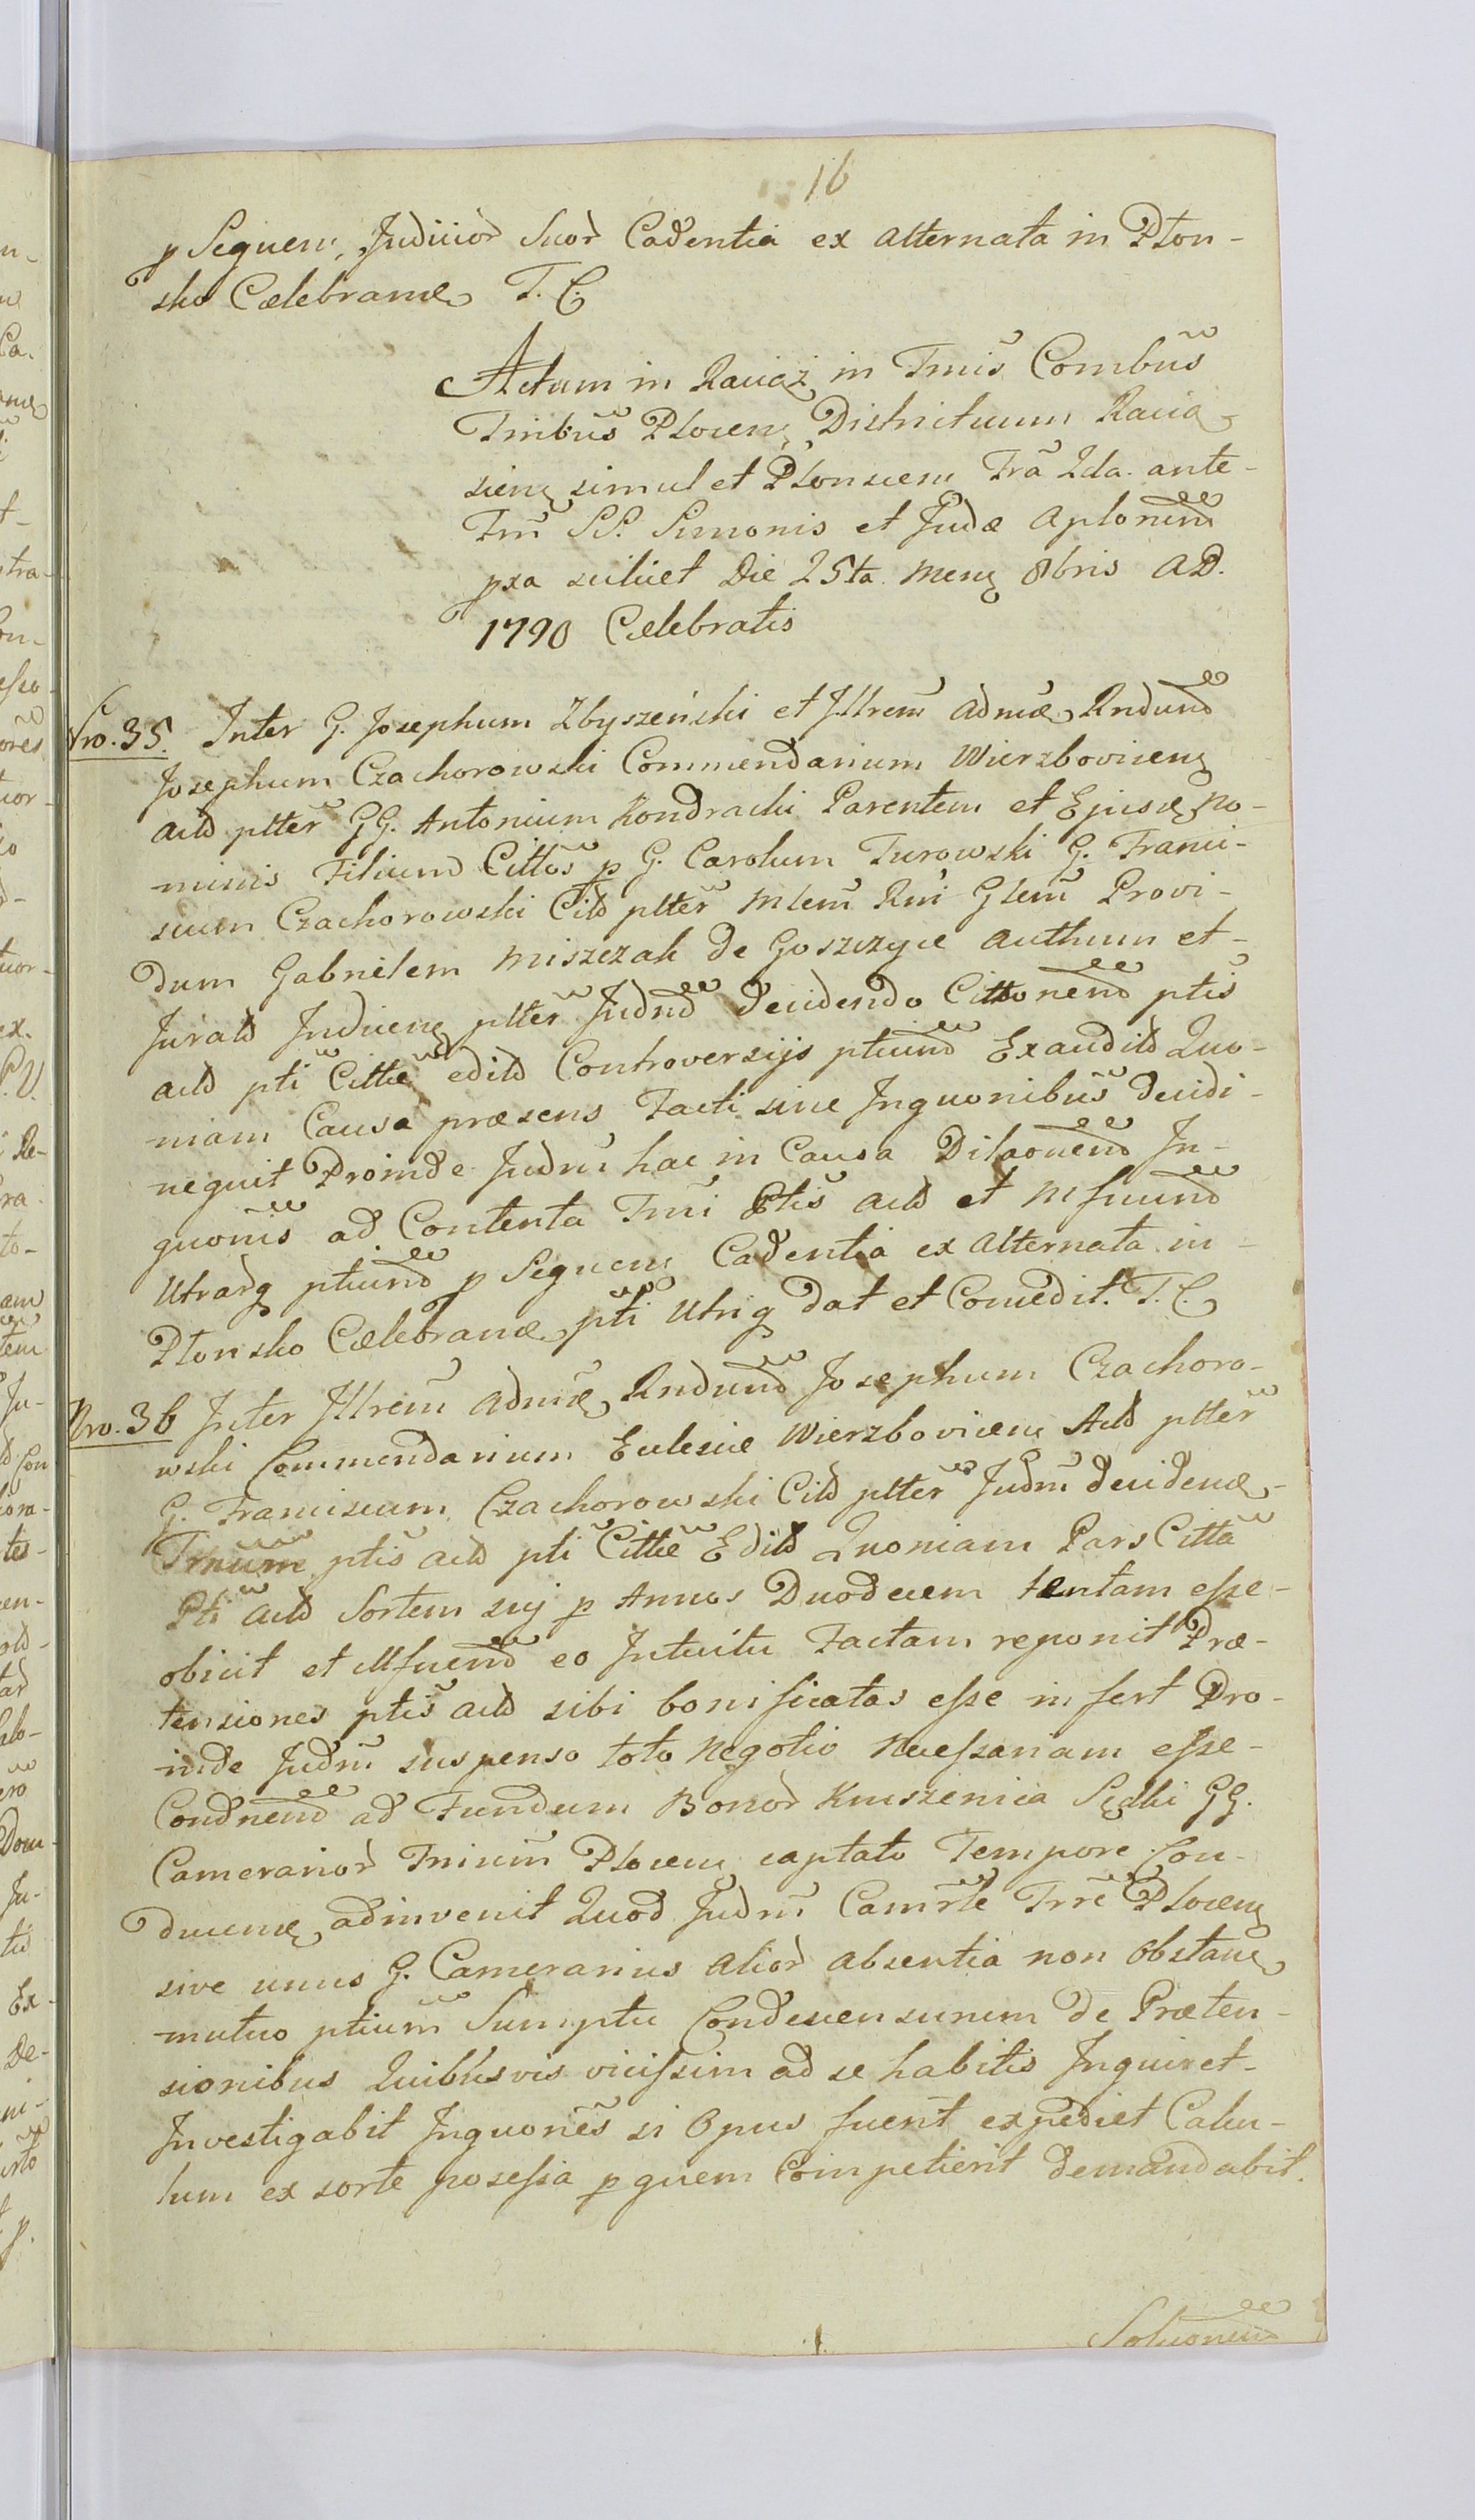 16
p Sequen, Judicior Suor Cadentia ex alternata in Plon-
sko Celebrand T. C.
Actum in Raciąż in Tmis Combus
Tribus Plocen Districtuum Racia
siens simul et Plonscen Fra 2da. ante-
Tm SS. Simonis et Judæ Aplorum
pxa scilicet Die 25ta. Mens 8bris AD.
1790 Celebratis
Nro. 35. Inter G. Josephum Zbyszeński et Jllrem Admae Rndum
Josephum Czachorowski Commendarium Wierzbovicens
actd plter GG. Antonium Kondracki Parentem et Ejusd No-
minis Filium Cittos p G. Carolum Turowski G. Franci-
scum Czachorowski Citd plter Mlem Rni Glem Provi-
dum Gabrielem Miszczak de Goszczyce Authum et-
Juratd Judicens plter Judnd decidendo Cittonend ptis
actd pti Cittæ editd Controversijs ptiund Exauditd Quo-
niam Causa præsens Facti sine Inquonibus decidi-
nequit Proinde Judm hac in Causa Dilaonend In-
quonis ad Contenta Tmi Ptis actd et Mfuund
Utrarq ptiund p Sequens Cadentia ex Alternata in-
Plonsko Celebrand pti Utriq dat et Comedit. T. C.
Nro. 36 Inter Jllrem Admæ Rndund Josephum Czachoro-
wski Commendarium Eclesiæ Wierzbovicens Actd plter
G. Franciscum Czachorowski Citd plter Judm decidend-
Tmum ptis actd pti Cittæ Editd Quoniam Pars Citta
Pti actd Sortem suj p Annos Duodecem tentam esse-
obicit et Mfuend eo Intuitu Factam reponit Præ-
tensiones ptis actd sibi bonificatas esse infert Pro-
inde Judm suspenso toto Negotio Necessariam esse-
Condnend ad Fundum Bonor Kuiszenica Sędki GG.
Camerarior Tmium Plocens captato Tempore Con-
ducend adinvenit Quod Judm Camrle Trre Plocens
sive unus G. Camerarius alior absentia non Obstand
mutuo ptium Sumptu Condescensurum de Præten-
sionibus Quibusvis vicissim ad se habitis Inquiret-
Investigabit Inquones si Opus fuerit expediet Calcu-
lum ex sorte posessa p quem Competierit demandabit.
Soluonend